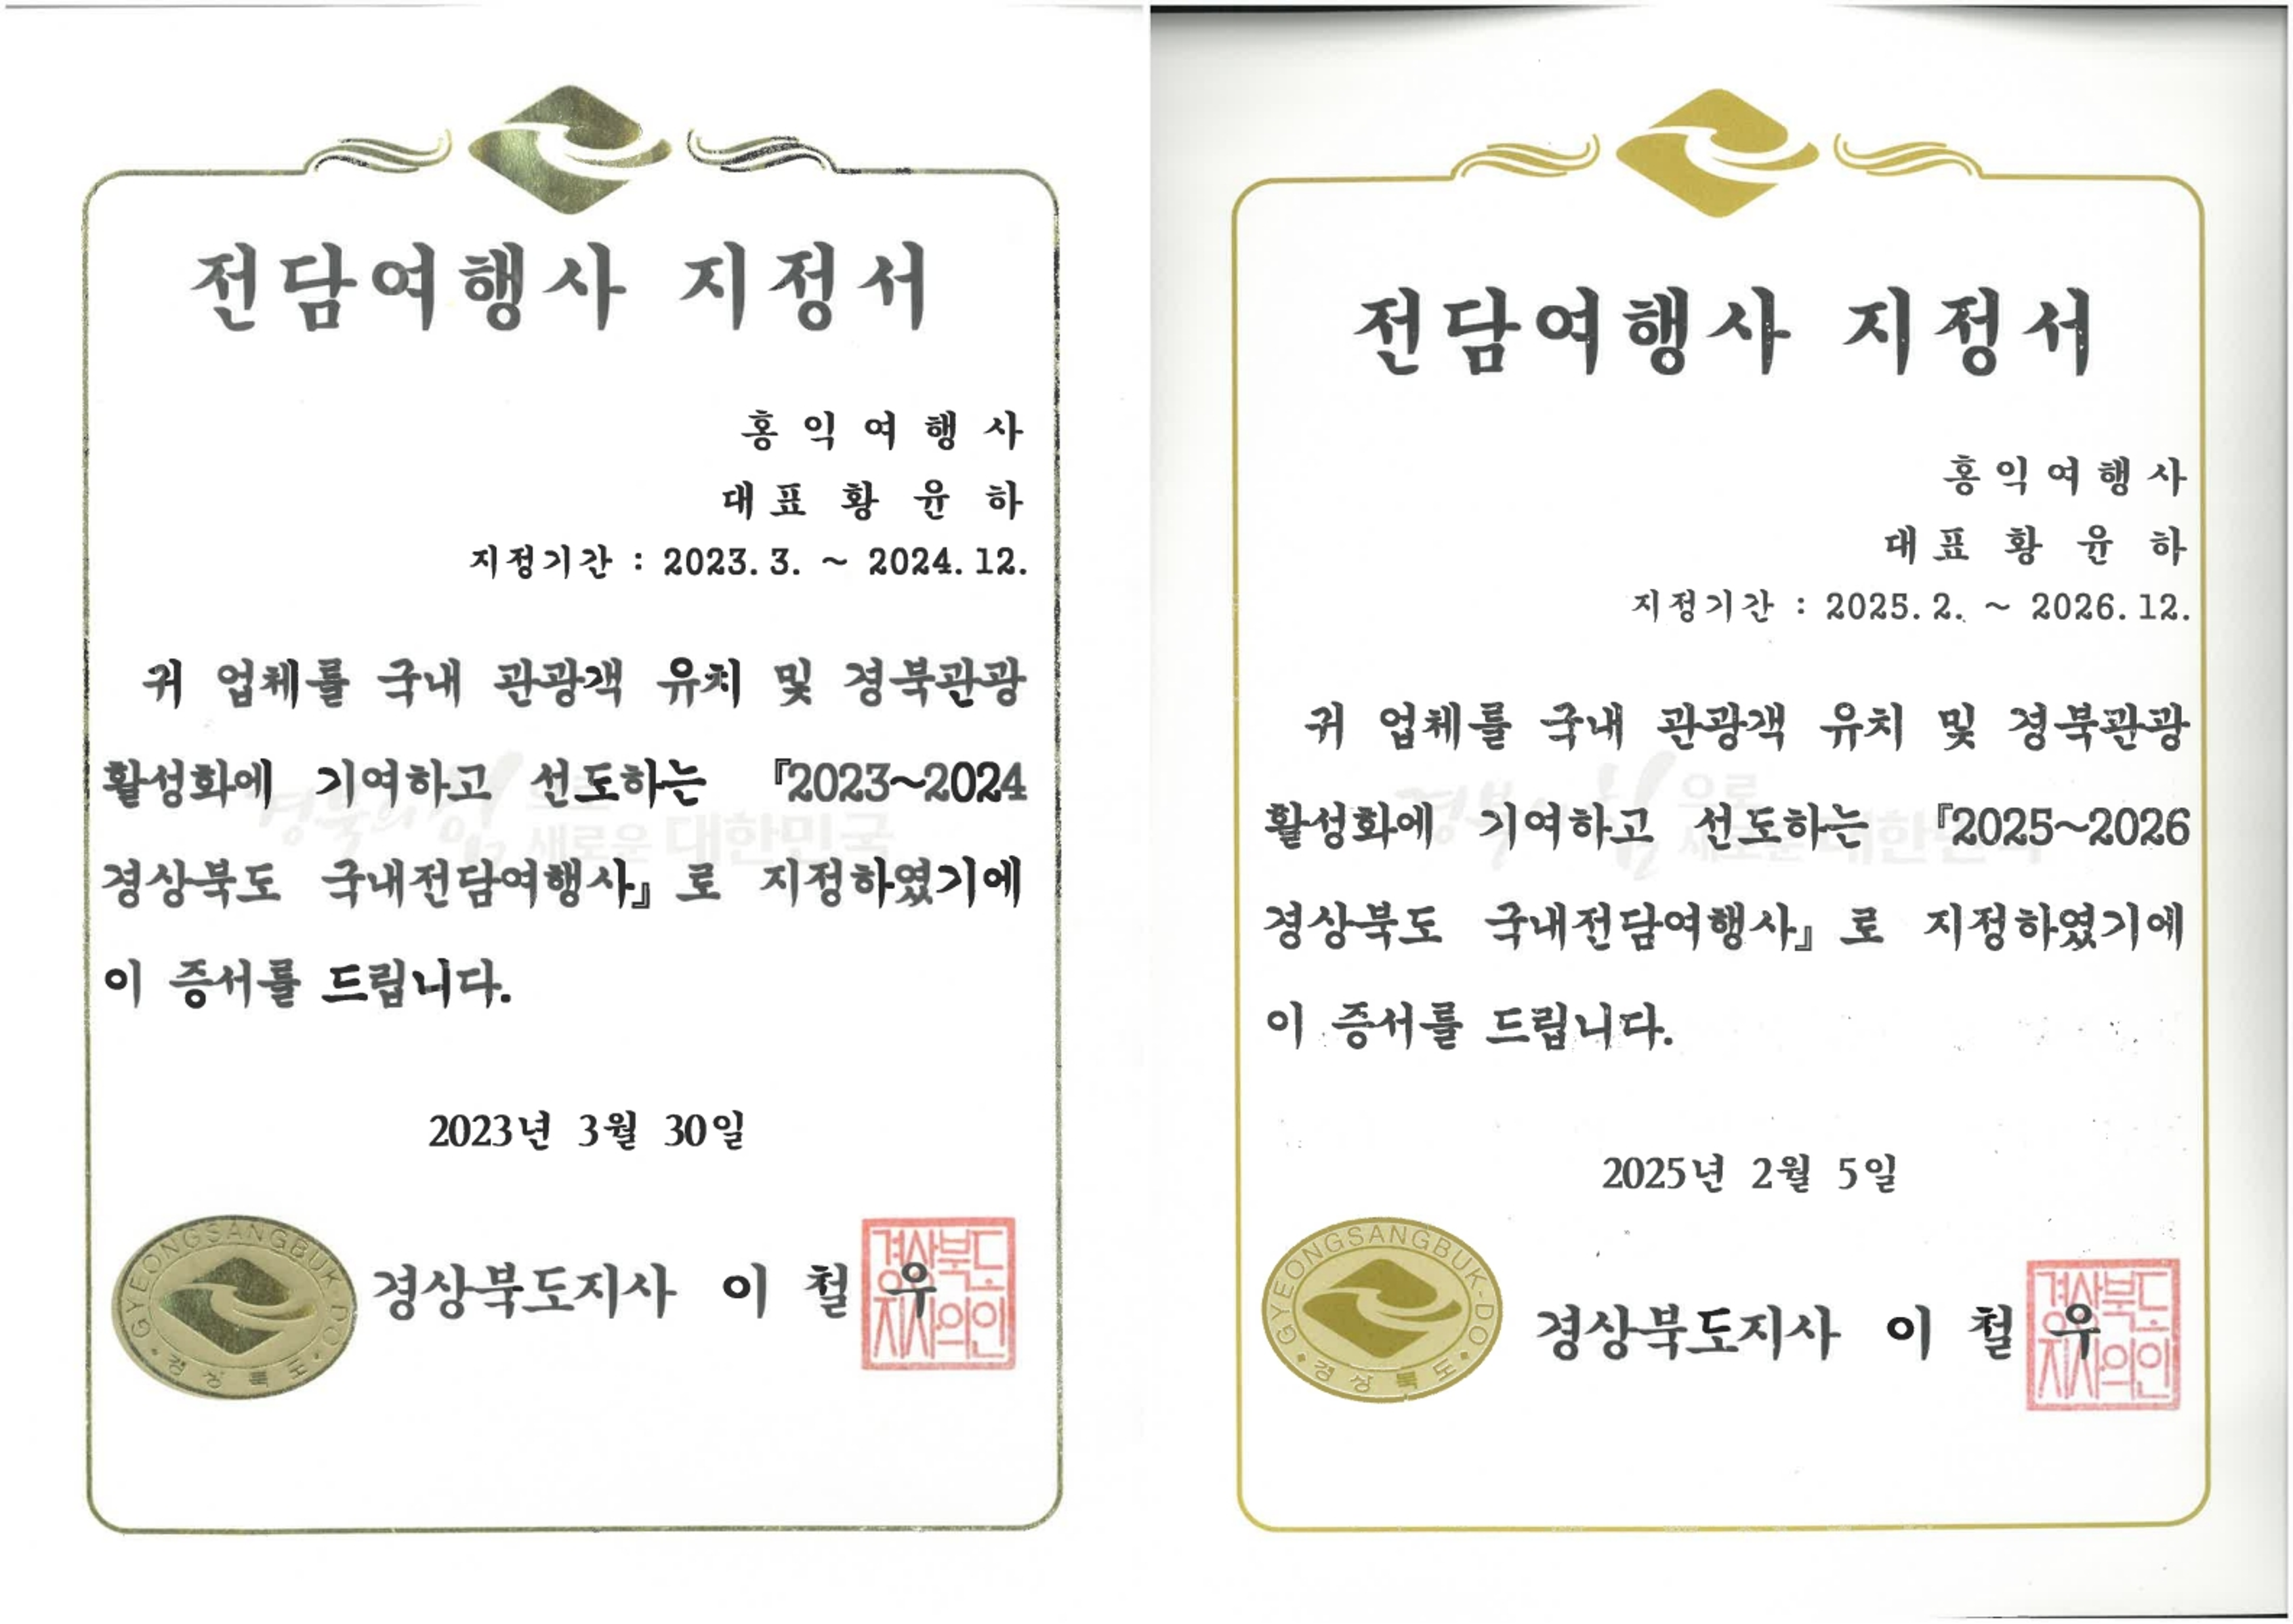 전담여행사 지정서
홍익여행사
대표 황윤하
지정기간 : 2023. 3. ~ 2024. 12.
귀 업체를 국내 관광객 유치 및 경북관광
활성화에 기여하고 선도하는 『2023~2024
경상북도 국내전담여행사』로 지정하였기에
이 증서를 드립니다.
경북의 힘으로
새로운 대한민국
2023년 3월 30일
GYEONGSANGBUK-DO
경상북도
경상북도지사 이 철 우
경상북도
지사의인
전담여행사 지정서
홍익여행사
대표 황윤하
지정기간 : 2025. 2. ~ 2026. 12.
귀 업체를 국내 관광객 유치 및 경북관광
활성화에 기여하고 선도하는 『2025~2026
경상북도 국내전담여행사』로 지정하였기에
이 증서를 드립니다.
경북의 힘으로
새로운 대한민국
2025년 2월 5일
GYEONGSANGBUK-DO
경상북도
경상북도지사 이 철 우
경상북도
지사의인